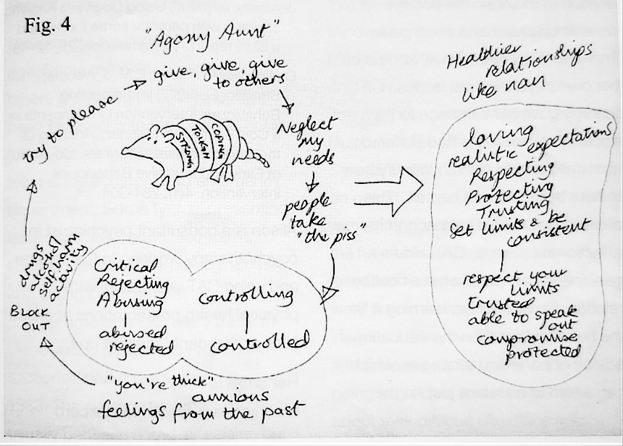 Fig. 4
"Agony Aunt"
give, give, give
to others
Neglect
my
needs
people
take
"the piss"
try to please
STRONG
TOUGH
COPING
Critical
Rejecting
Abusing
abused
rejected
controlling
controlled
"you're thick"
anxious
feelings from the past
BLOCK
OUT
drugs
alcohol
self harm
activity
Healthier
relationships
like nan
loving
realistic expectations
Respecting
Protecting
Trusting
Set limits & be
consistent
respect your
limits
trusted
able to speak
out
compromise
protected